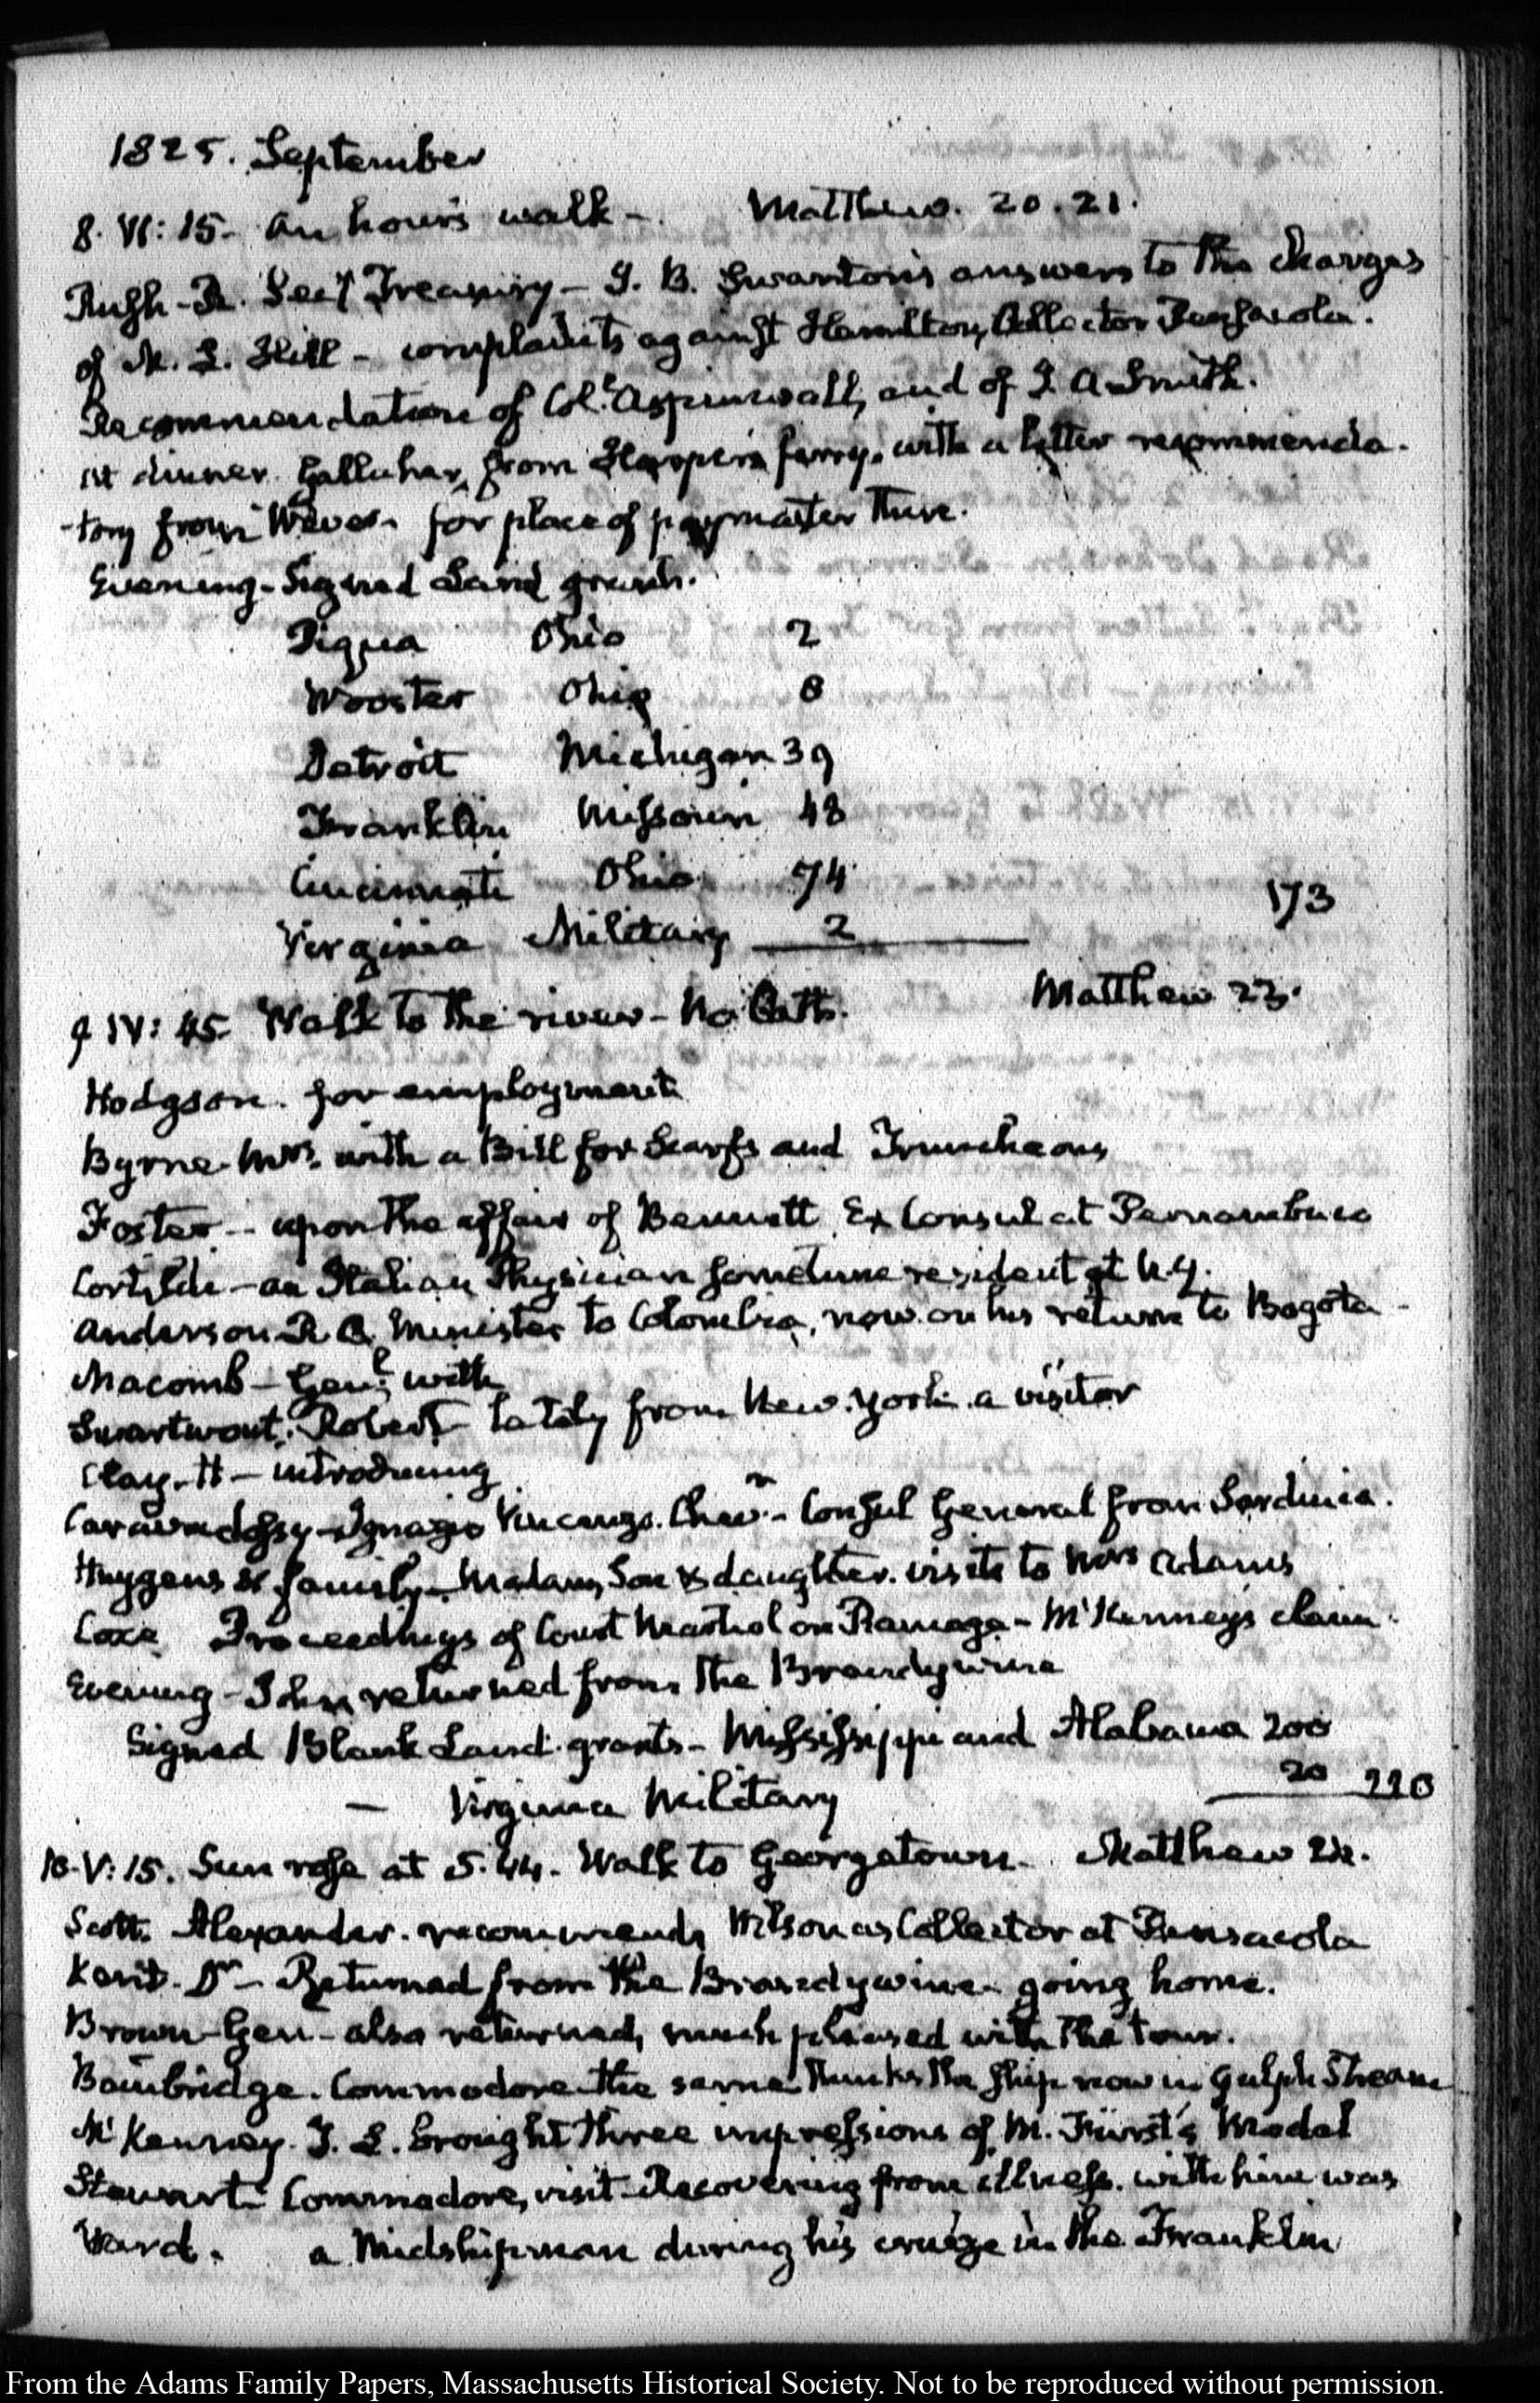 1825. September
8. VI: 15. An hour's walk – Matthew. 20. 21.
Rush - R. Secy Treasury – J. B. Swanton's answers to the charges
of M. L. Hill – complaints against Hamilton, Collector Pensacola.
Recommendation of Coll. Aspinwall, and of J. A Smith.
At dinner. Gallaher, from Harper's ferry. with a letter recommenda-
-tory from for place of paymaster there.
Evening - Signed Land grants.
Piqua Ohio 2
Wooster Ohio 8
Detroit Michigan 39
Franklin Missouri 48
Cincinnati Ohio 74
Virginia Military 2 173
9 IV: 45. Walk to the river – No Bath. Matthew 23.
Hodgson. for employment
Byrne Mrs. with a Bill for Scarfs and Truncheons
Foster – upon the affair of Bennett Ex Consul at Pernambuco
– an Italian Physician sometime resident at N.Y.
Anderson R C. Minister to Colombia, now on his return to Bogota –
Macomb – Genl. with
Swartwout. Robert – lately from New-York. a visitor
Clay. H – introducing
Ignazio Vincenzo. Chevr. – Consul General from Sardinia.
Huygens & family – Madam, Son & daughter. visit to Mrs Adams
Coxe Proceedings of Court Martial on Ramage – McKenney's claim.
Evening – John returned from the Brandywine
Signed Blank Land grants – Mississippi and Alabama 200
– Virginia Military 20 220
10. V: 15. Sun rose at 5. 44. Walk to Georgetown. Matthew 24.
Scott. Alexander. recommends Wilson as Collector at Pensacola
Kent. Dr – Returned from the Brandywine – going home.
Brown – Genl – also returned, much pleased with the tour.
Bainbridge. Commodore – the same thinks the Ship now in Gulph Stream
McKenney. T. L. brought three impressions of M. Fürst's Medal
Stewart – Commodore, visit – Recovering from illness. with him was
Ward. a Midshipman during his cruize in the Franklin
From the Adams Family Papers, Massachusetts Historical Society. Not to be reproduced without permission.